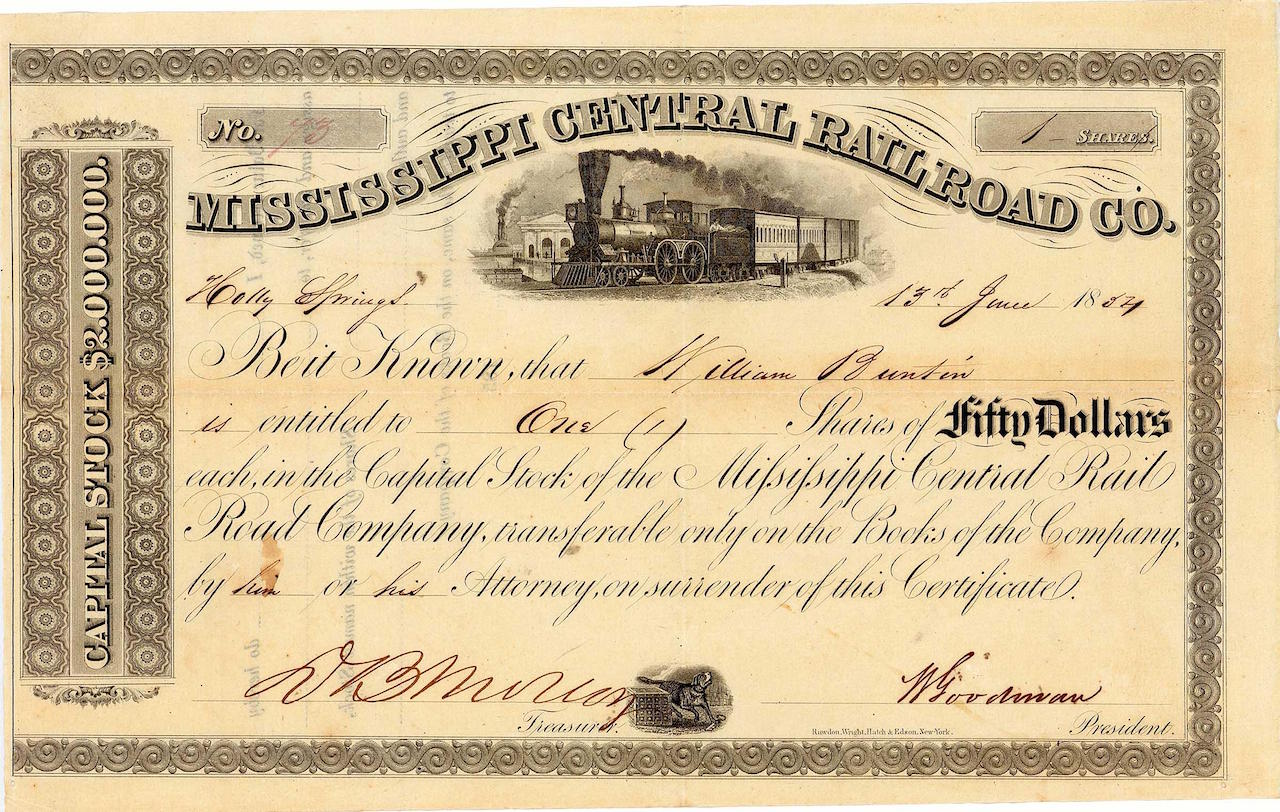 No.
1 SHARES.
MISSISSIPPI CENTRAL RAILROAD CO.
CAPITAL STOCK $2.000.000.
Holly Springs. 13th June 1854
Be it Known, that William Buntin
is entitled to One (1) Shares of Fifty Dollars
each, in the Capital Stock of the Mississippi Central Rail
Road Company, transferable only on the Books of the Company,
by him or his Attorney, on surrender of this Certificate.
W Goodman
Treasurer. President.
Rawdon, Wright, Hatch & Edson, New-York.